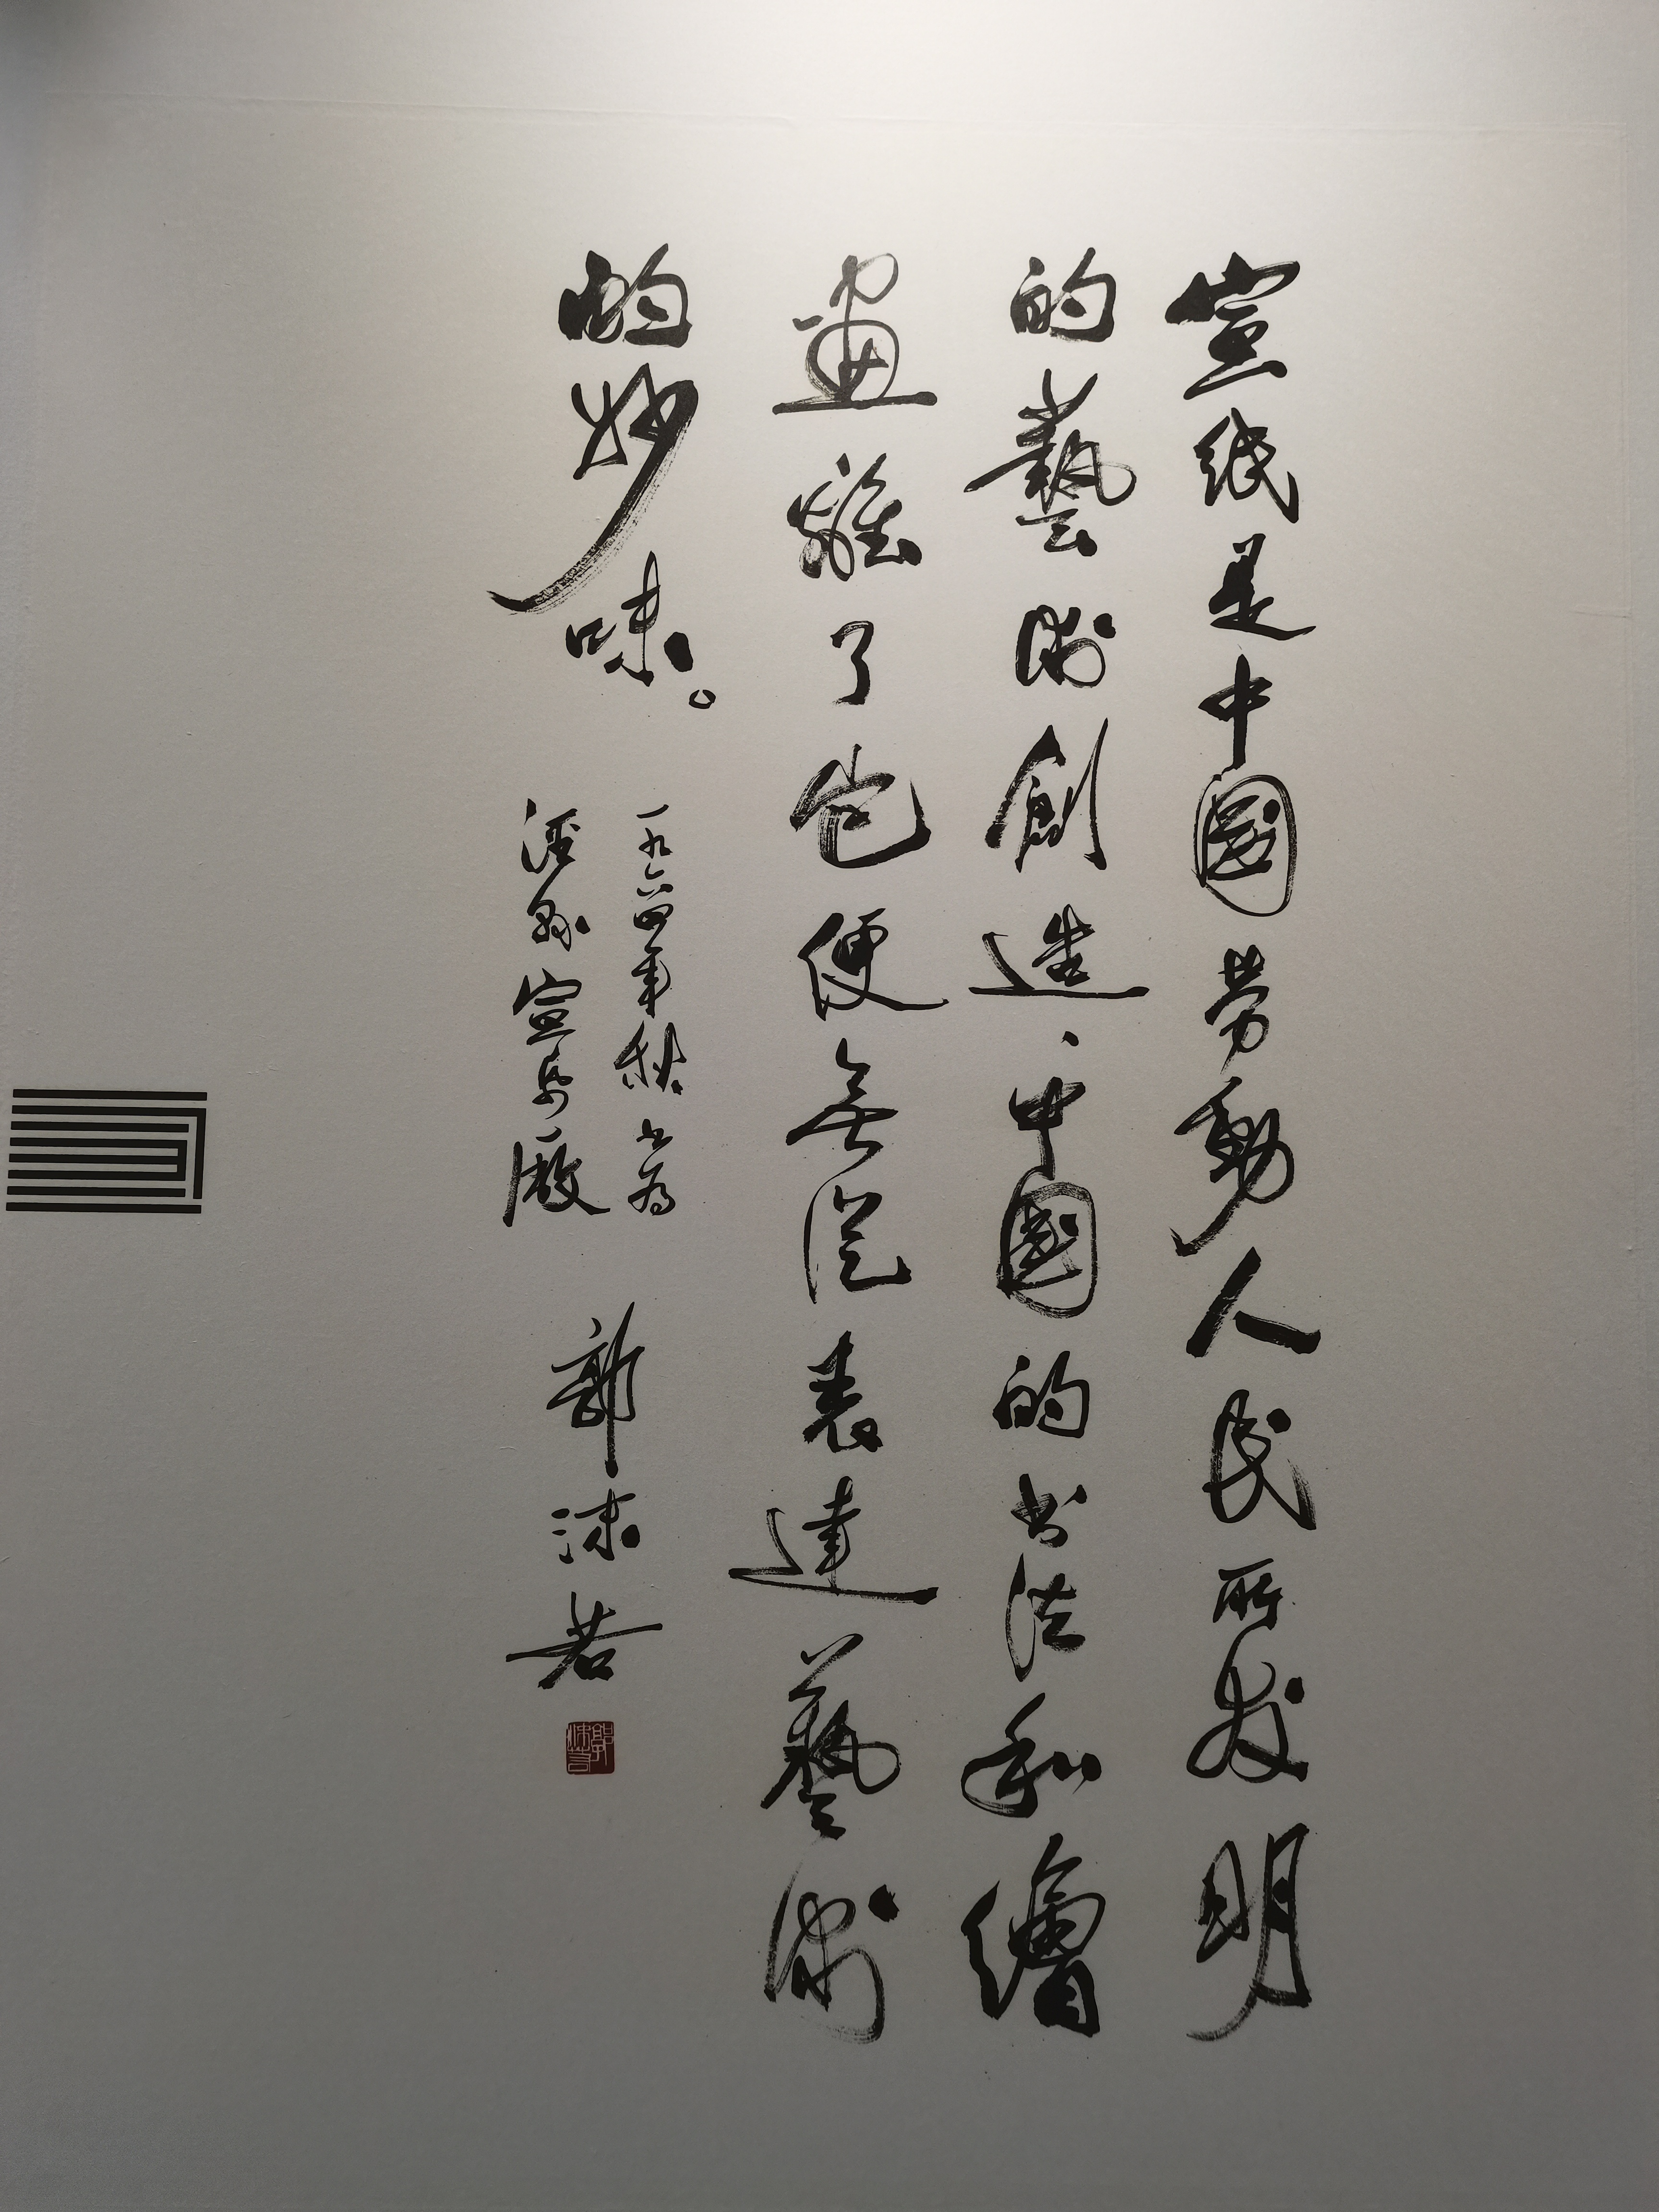 宣纸是中國劳動人民所发明
的藝術創造、中國的书法和繪
畫離了它便无從表達藝術
的妙味。
一九六四年秋书为
涇县宣纸厰
郭沫若
郭沫若